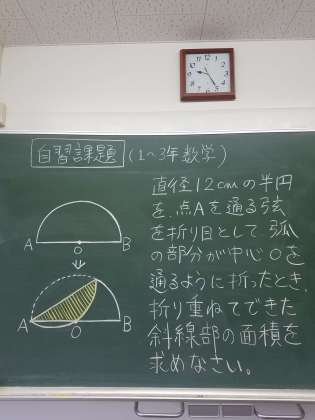 自習課題 (1〜3年数学)
直径12cmの半円
を、点Aを通る弦
を折り目として、弧
の部分が中心Oを
通るように折ったとき、
折り重ねてできた
斜線部の面積を
求めなさい。
A O B
A O B